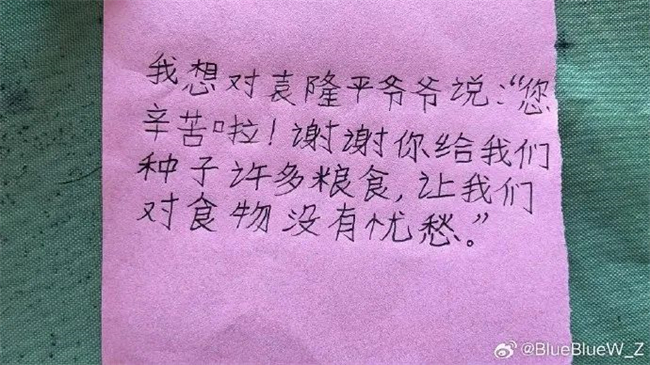 我想对袁隆平爷爷说:“您
辛苦啦!谢谢你给我们
种子许多粮食,让我们
对食物没有忧愁。”
@BlueBlueW_Z